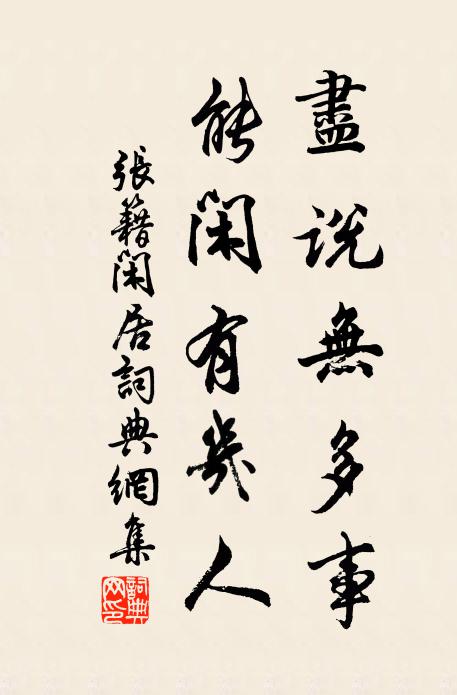 盡説無多事
能閑有幾人
張籍閑居詞典網集
詞典網印